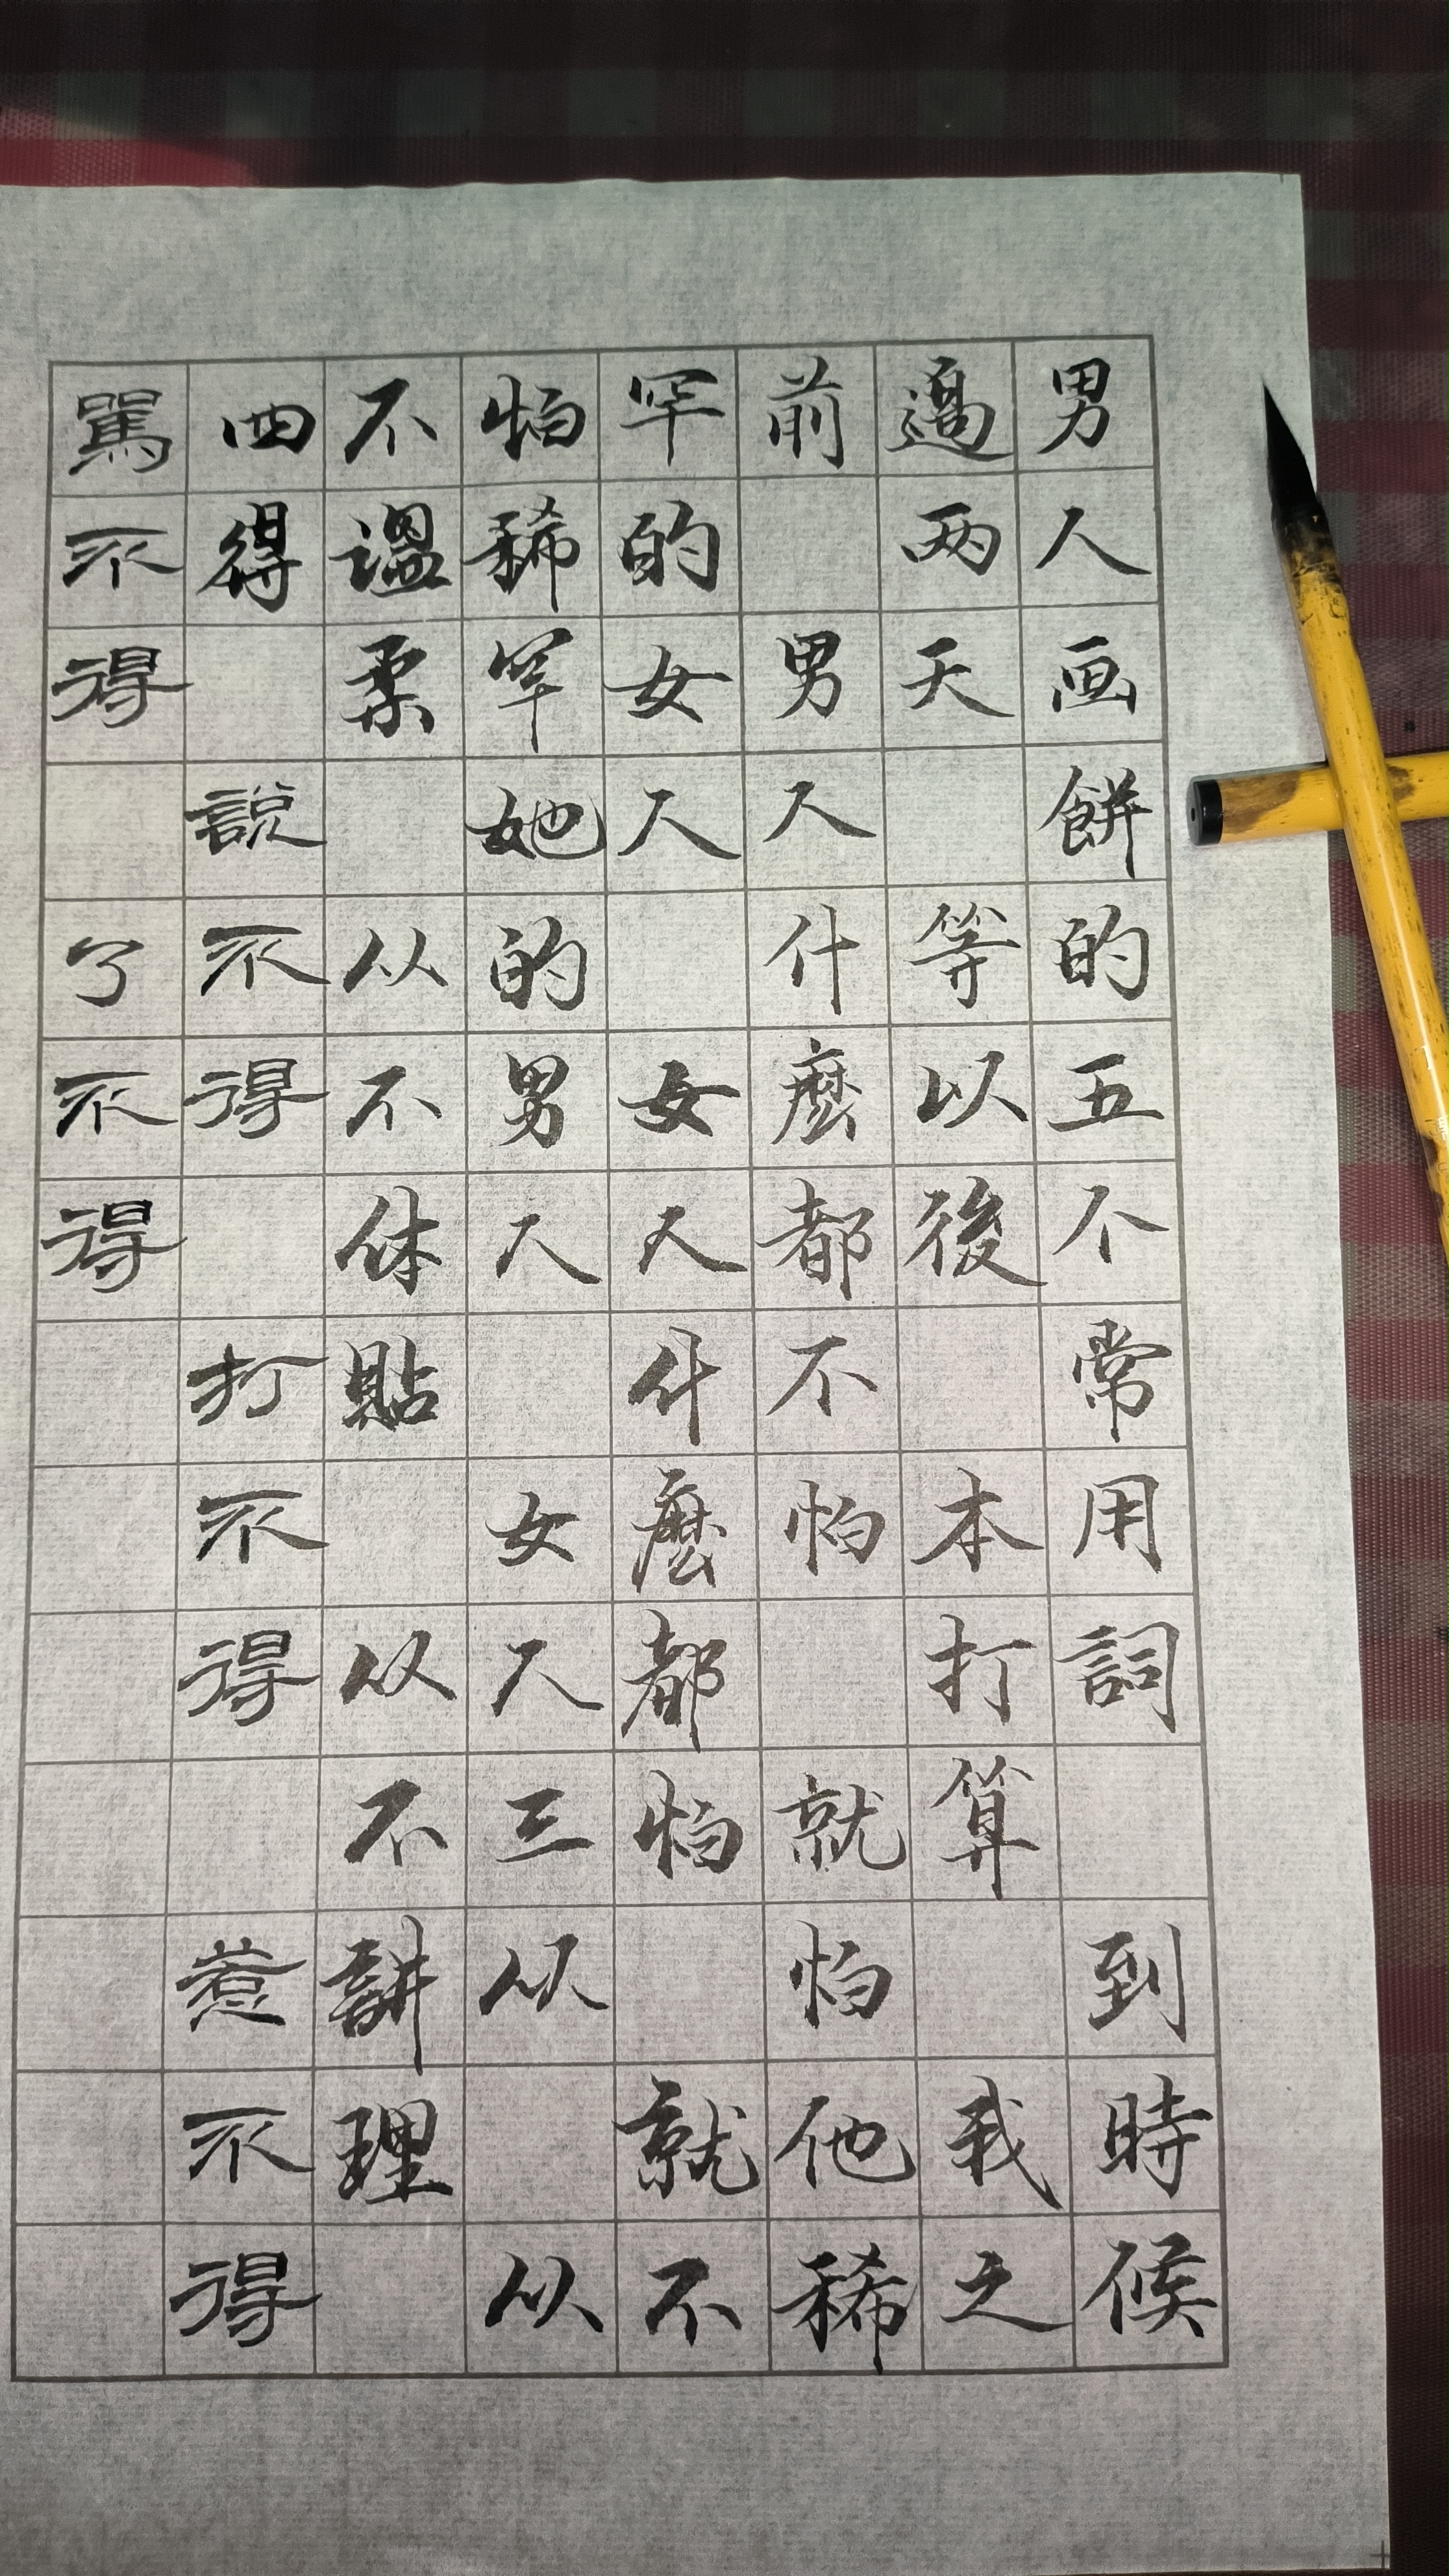 男人画餅的五个常用詞 到時候
過两天 等以後 本打算 我之
前 男人什麼都不怕 就怕他稀
罕的女人 女人什麼都怕 就不
怕稀罕她的男人 女人三从 从
不溫柔 从不体貼 从不講理
四得 說不得 打不得 惹不得
罵不得 了不得